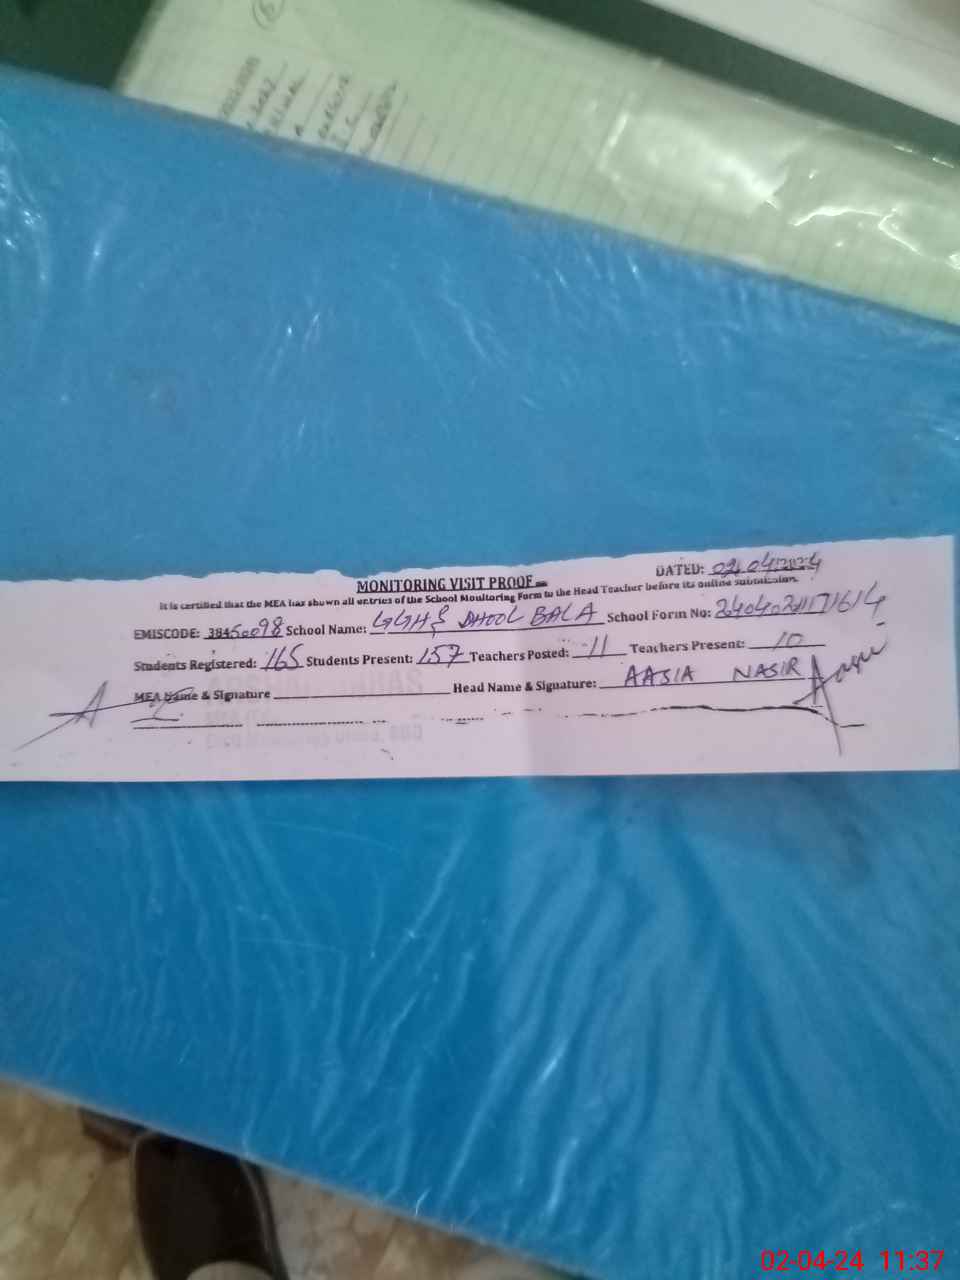 MONITORING VISIT PROOF
DATED: 02.04.2024
It is certified that the MEA has shown all entries of the School Monitoring Form to the Head Teacher before its online submission.
EMISCODE: 38450098 School Name: GGHS DHOOL BALA School Form No:
Students Registered: 165 Students Present: 157 Teachers Posted: 11 Teachers Present: 10
MEA Name & Signature Head Name & Signature: AASIA NASIR
02-04-24 11:37